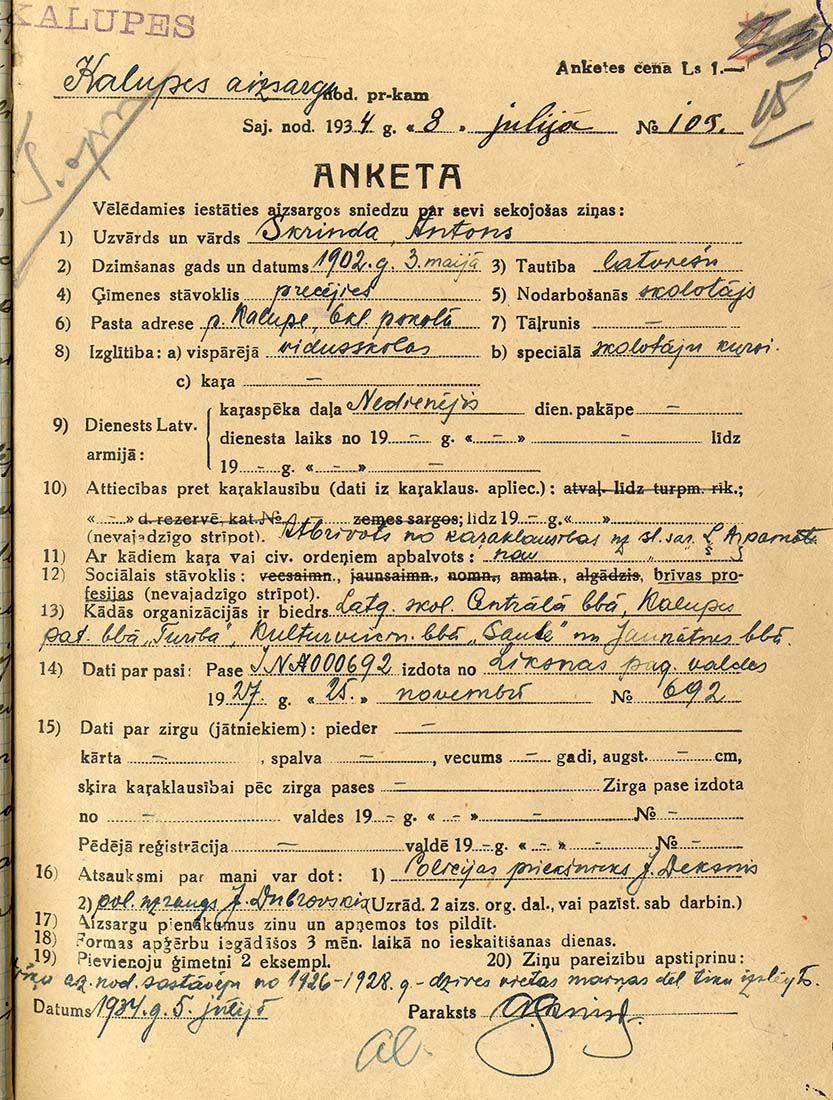 KALUPES
Anketes cena Ls 1.—
Kalupes aizsargu nod. pr-kam
15
Saj. nod. 1934 g. « 8 » julijā № 105.
ANKETA
Vēlēdamies iestāties aizsargos sniedzu par sevi sekojošas ziņas:
1) Uzvārds un vārds Skrinda, Antons
2) Dzimšanas gads un datums 1902. g. 3. maijā 3) Tautība latvietis
4) Ģimenes stāvoklis precējies 5) Nodarbošanās skolotājs
6) Pasta adrese p. Kalupe, 6kl. pskolā 7) Tāļrunis —
8) Izglītība: a) vispārējā vidusskolas b) speciālā skolotāju kursi.
c) kaŗa —
9) Dienests Latv. armijā: kaŗaspēka daļa Nedienējis dien. pakāpe —
dienesta laiks no 19 - g. « - » — līdz
19 - g. « - » —
10) Attiecības pret kaŗaklausību (dati iz kaŗaklaus. apliec.): atvaļ. līdz turpm. rik.;
« - » d. rezervē, kat. № zemes sargos; līdz 19 - g. « »
(nevajadzīgo stripot). Atbrīvots no karaklausības uz sl. sar.
11) Ar kādiem kaŗa vai civ. ordeņiem apbalvots: nav
12) Sociālais stāvoklis: vecsaimn., jaunsaimn., nomn., amatn., algādzis, brīvas pro-
fesijas (nevajadzīgo stripot).
13) Kādās organizācijās ir biedrs Latg. skol. Centrālā bbā, Kalupes
pat. bbā „Turiba", Kulturveicin. bbā „Saule" un Jaunatnes bbā.
14) Dati par pasi: Pase I NA000692 izdota no Liksnas pag. valdes
1927. g. « 25. » novembrī № 692
15) Dati par zirgu (jātniekiem): pieder —
kārta —, spalva —, vecums — gadi, augst. — cm,
šķira kaŗaklausībai pēc zirga pases — Zirga pase izdota
no — valdes 19 - g. « - » — № -
Pēdējā reģistrācija — valdē 19 - g. « - » - № -
16) Atsauksmi par mani var dot: 1) Policijas priekšnieks J. Deksnis
2) pol. uzraugs J. Dubrovskis (Uzrād. 2 aizs. org. dal., vai pazīst. sab darbin.)
17) Aizsargu pienākumus zinu un apņemos tos pildīt.
18) Formas apģērbu iegādāšos 3 mēn. laikā no ieskaitīšanas dienas.
19) Pievienoju ģimetni 2 eksempl. 20) Ziņu pareizību apstiprinu:
az. nod. sastāvēju no 1926-1928. g. - dzīves vietas maiņas dēļ tiku izslēgts.
Datums 1934. g. 5. jūlijā Paraksts